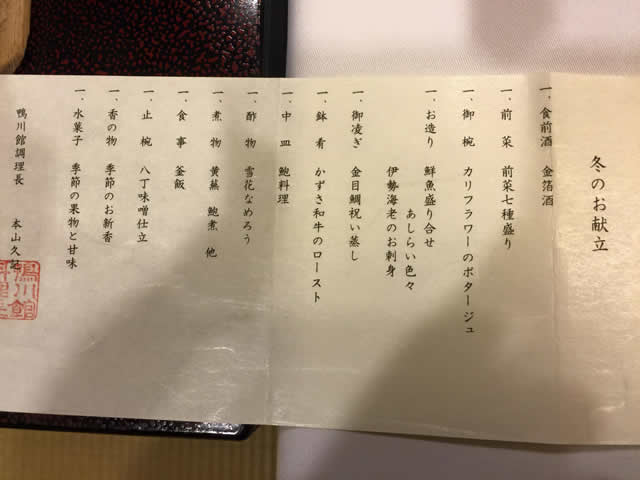 冬のお献立
一、食前酒　金箔酒
一、前菜　前菜七種盛り
一、御椀　カリフラワーのポタージュ
一、お造り　鮮魚盛り合せ
あしらい色々
伊勢海老のお刺身
一、御凌ぎ　金目鯛祝い蒸し
一、鉢肴　かずさ和牛のロースト
一、中皿　鮑料理
一、酢物　雪花なめろう
一、煮物　黄蕪　鮑煮　他
一、食事　釜飯
一、止椀　八丁味噌仕立
一、香の物　季節のお新香
一、水菓子　季節の果物と甘味
鴨川館調理長　本山久記
鴨川館